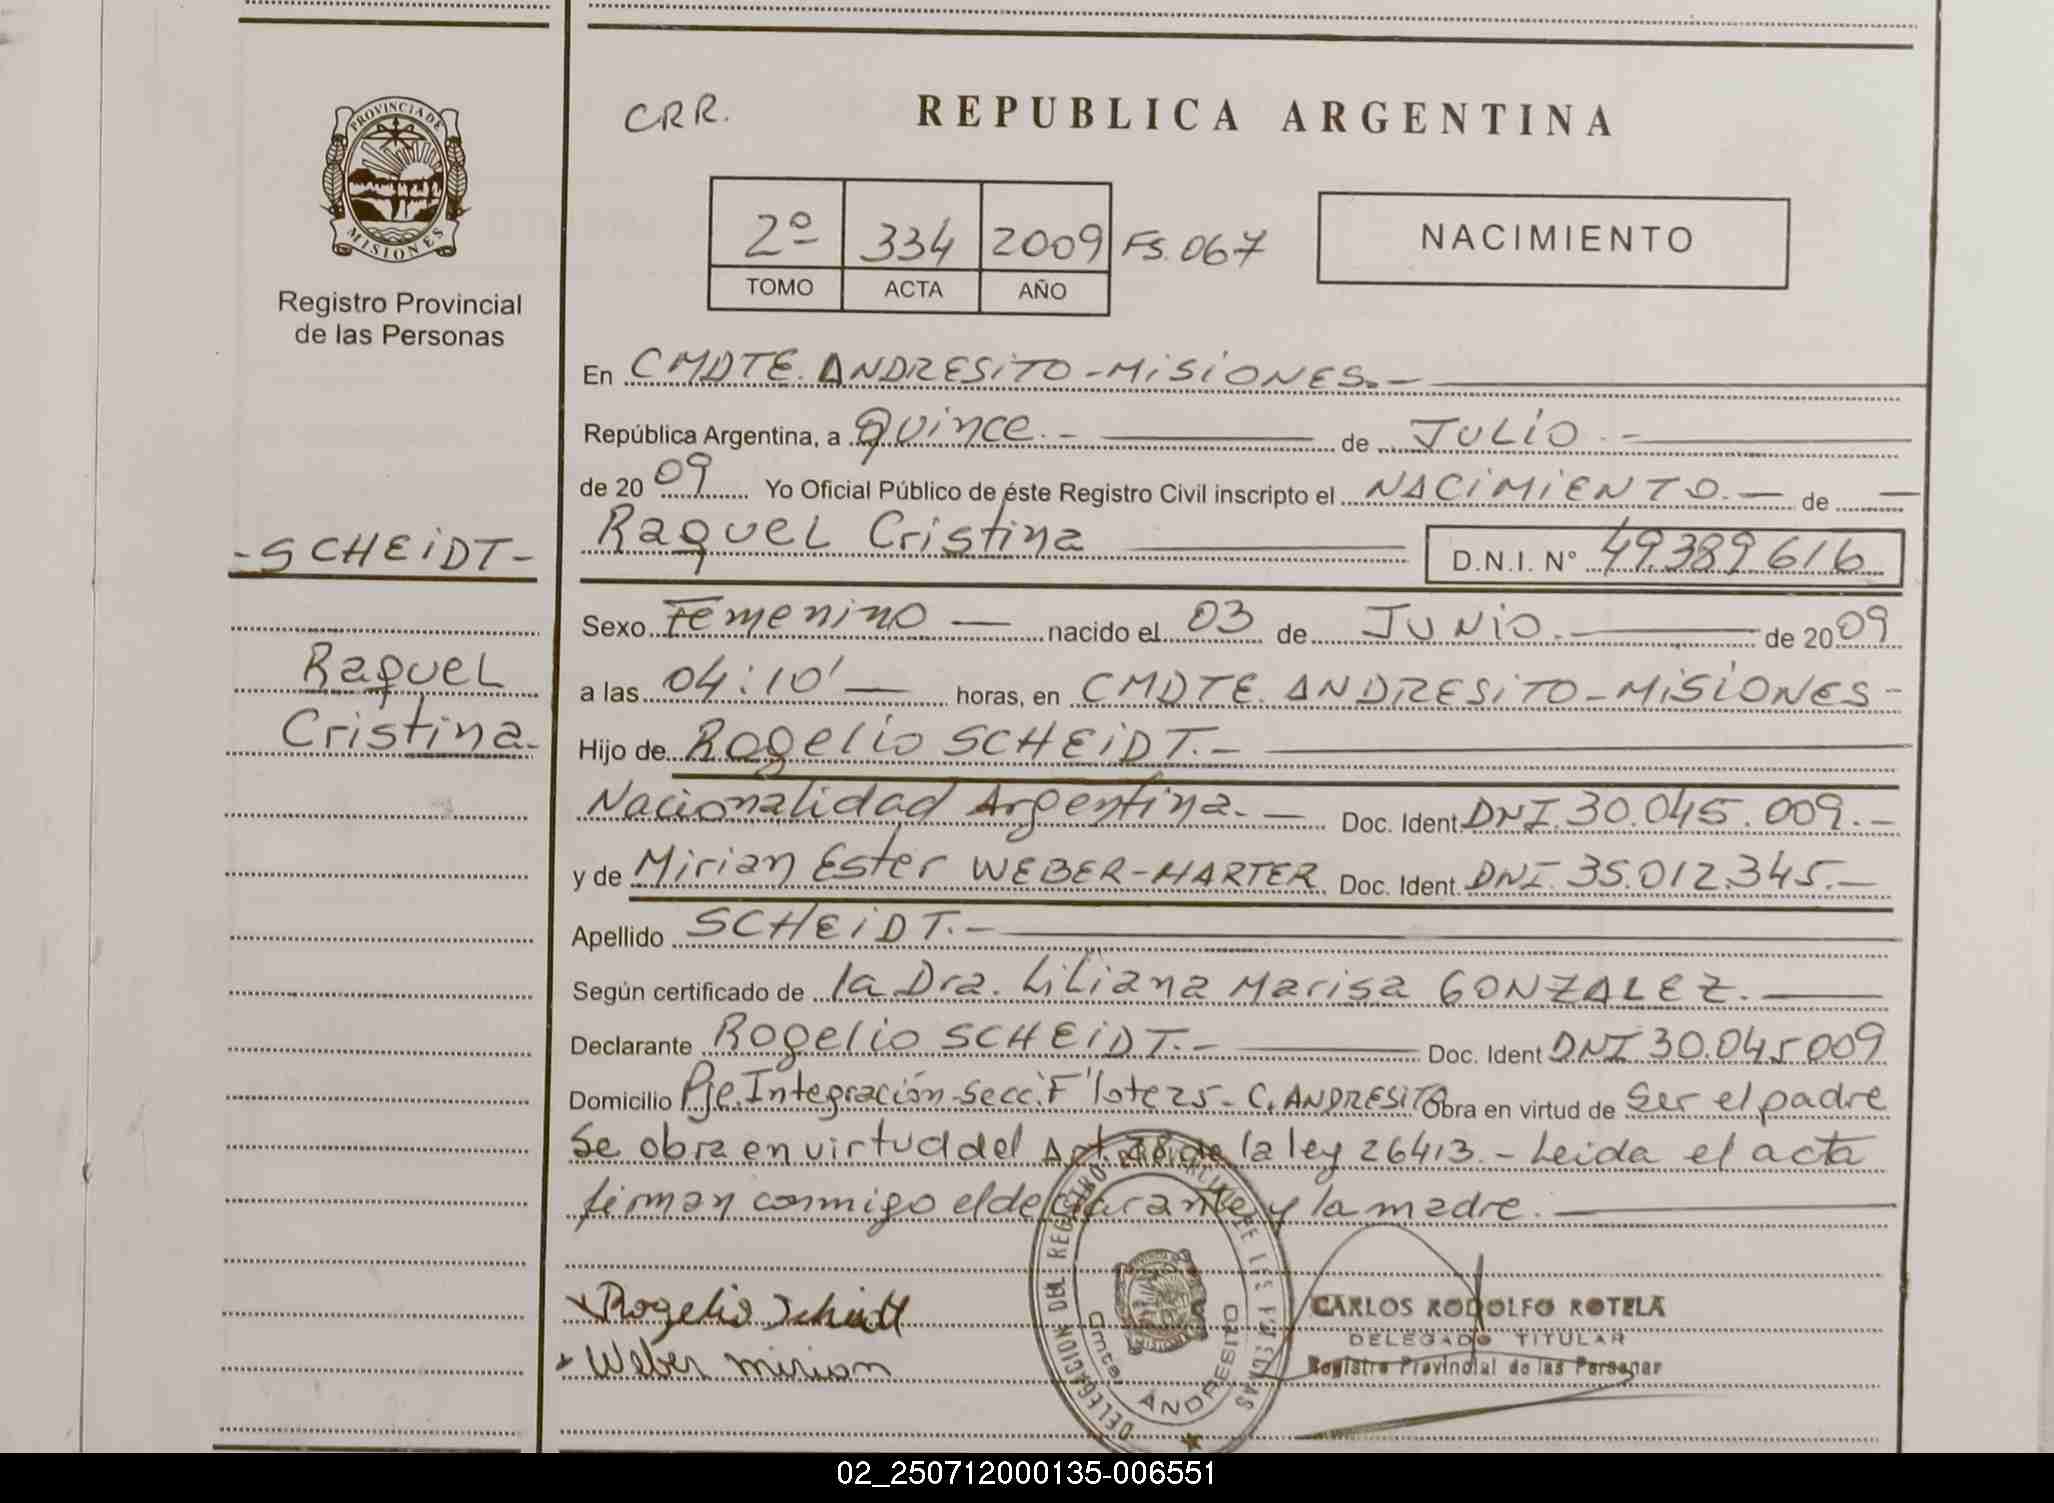 PROVINCIA DE
MISIONES
Registro Provincial
de las Personas
-SCHEIDT-
Raquel
Cristina.-
CRR.
REPUBLICA ARGENTINA
2º 334 2009 FS. 067
TOMO ACTA AÑO
NACIMIENTO
En CMDTE. ANDRESITO-MISIONES.-
República Argentina, a Quince.- de JULIO.-
de 20 09 Yo Oficial Público de éste Registro Civil inscripto el NACIMIENTO.- de -
Raquel Cristina D.N.I. N° 49.389.616
Sexo Femenino - nacido el 03 de JUNIO. de 20 09
a las 04:10' - horas, en CMDTE. ANDRESITO-MISIONES-
Hijo de Rogelio SCHEIDT.-
Nacionalidad Argentina.- Doc. Ident DNI.30.045.009.-
y de Mirian Ester WEBER-HARTER Doc. Ident. DNI. 35.012.345.-
Apellido SCHEIDT.-
Según certificado de la Dra. Liliana Marisa GONZALEZ.
Declarante Rogelio SCHEIDT.- Doc. Ident DNI 30.045009
Domicilio Pje.Integración-Secc."F" lote 25- C.ANDRESITO Obra en virtud de Ser el padre
Se obra en virtud del Art. 28 de la ley 26413.- Leida el acta
firman conmigo el declarante y la madre.
x Rogelio Scheidt
x Weber mirian
DELEGACION DEL REGISTRO PROVINCIAL DE LAS PERSONAS
Cmte. ANDRESITO
CARLOS RODOLFO ROTELA
DELEGADO TITULAR
Registro Provincial de las Personas
02_250712000135-006551